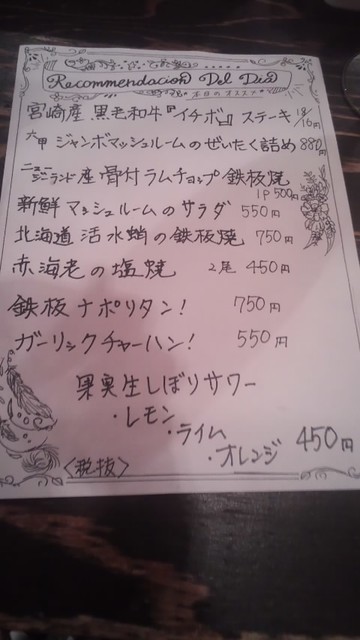 Recommendacion Del Dia
本日のオススメ
宮崎産 黒毛和牛『イチボ』ステーキ 1g 16円
六甲 ジャンボマッシュルームのぜいたく詰め 880円
ニュージーランド産 骨付ラムチョップ鉄板焼 1P 500円
新鮮マッシュルームのサラダ 550円
北海道 活水蛸の鉄板焼 750円
赤海老の塩焼 2尾 450円
鉄板ナポリタン! 750円
ガーリックチャーハン! 550円
果実生しぼりサワー
・レモン
・ライム
・オレンジ 450円
〈税抜〉